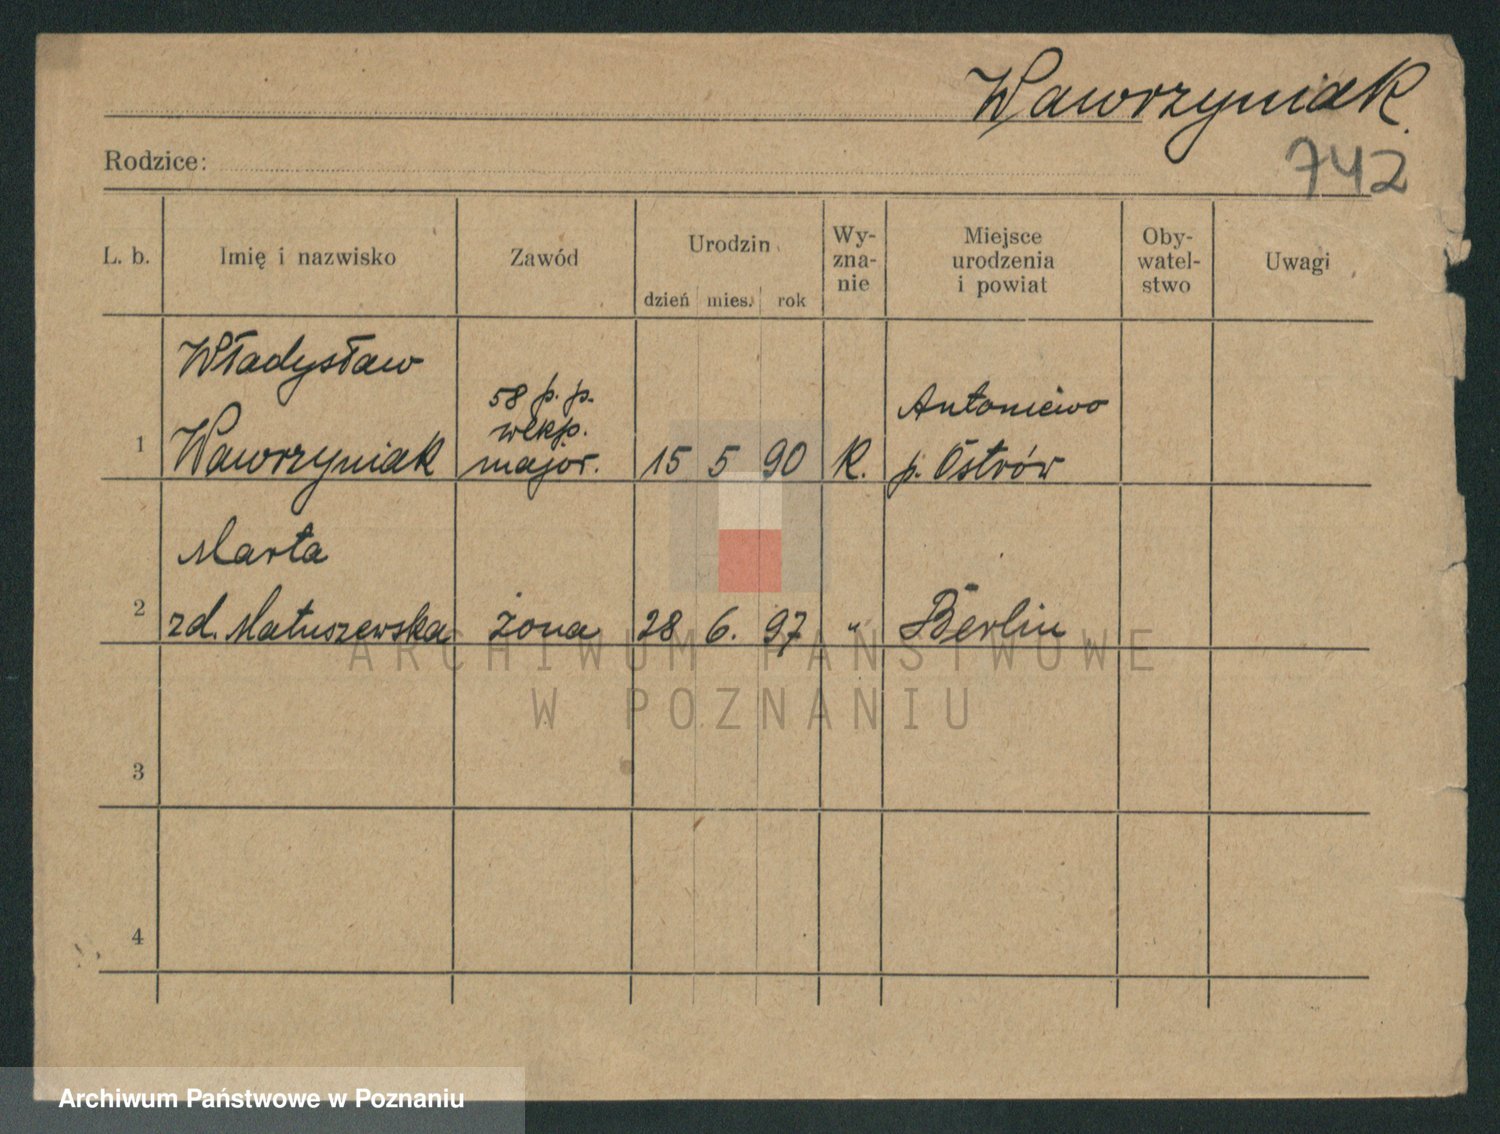 Wawrzyniak.
742
Rodzice:
L. b. Imię i nazwisko Zawód Urodzin dzień mies. rok Wy-zna-nie Miejsce urodzenia i powiat Oby-watel-stwo Uwagi
Władysław
58 p. p.
wlkp.
Antoniewo
1 Wawrzyniak major. 15 5 90 R. p. Ostrów
Marta
2 zd. Matuszewska żona 28 6. 97 " Berlin
ARCHIWUM PAŃSTWOWE
W POZNANIU
3
4
Archiwum Państwowe w Poznaniu